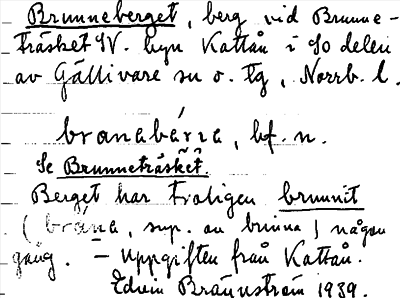 Brunneberget, berg vid Brunne-
träsket SV. byn Kattån i SO delen
av Gällivare sn o. tg, Norrb. l.
branabárra, bf. n.
Se Brunneträsket.
Berget har troligen brunnit
(brána, sup. av brinna) någon
gång. - Uppgiften från Kattån.
Edvin Brännström 1939.